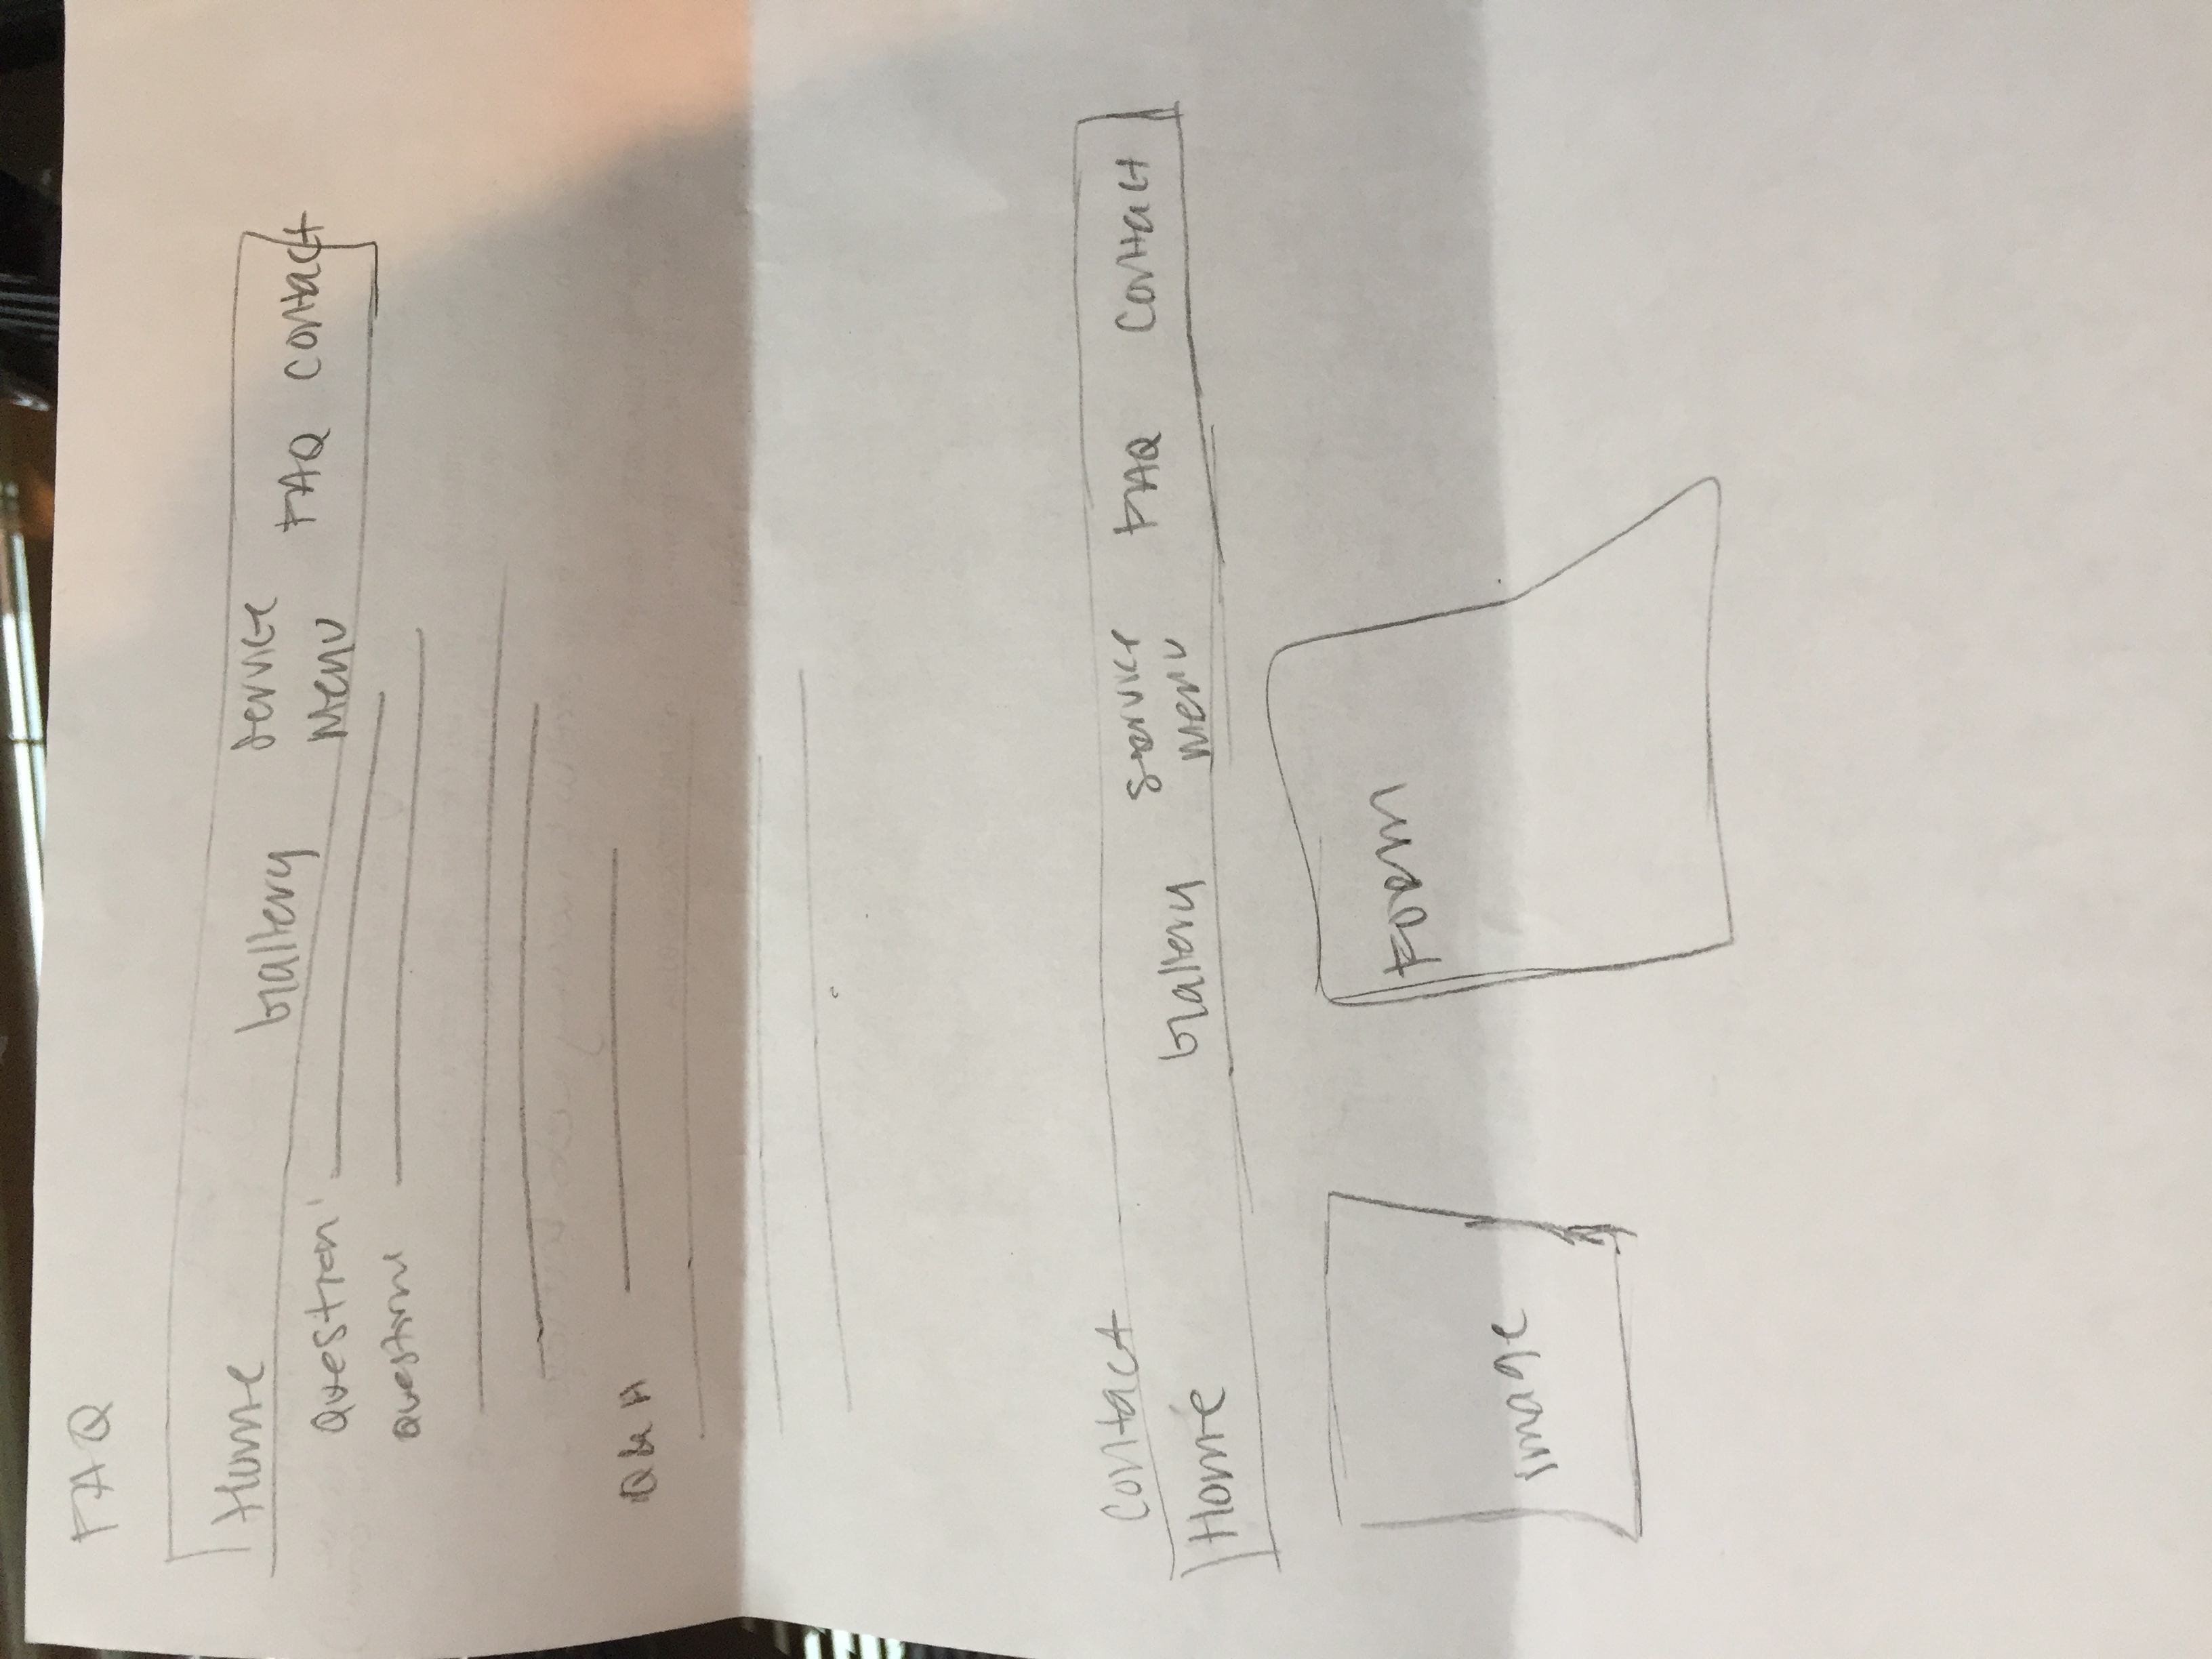 FAQ
Home Gallery Service Menu FAQ Contact
Question
Questions
Q & A
Contact
Home Gallery Service Menu FAQ Contact
Image
FORM